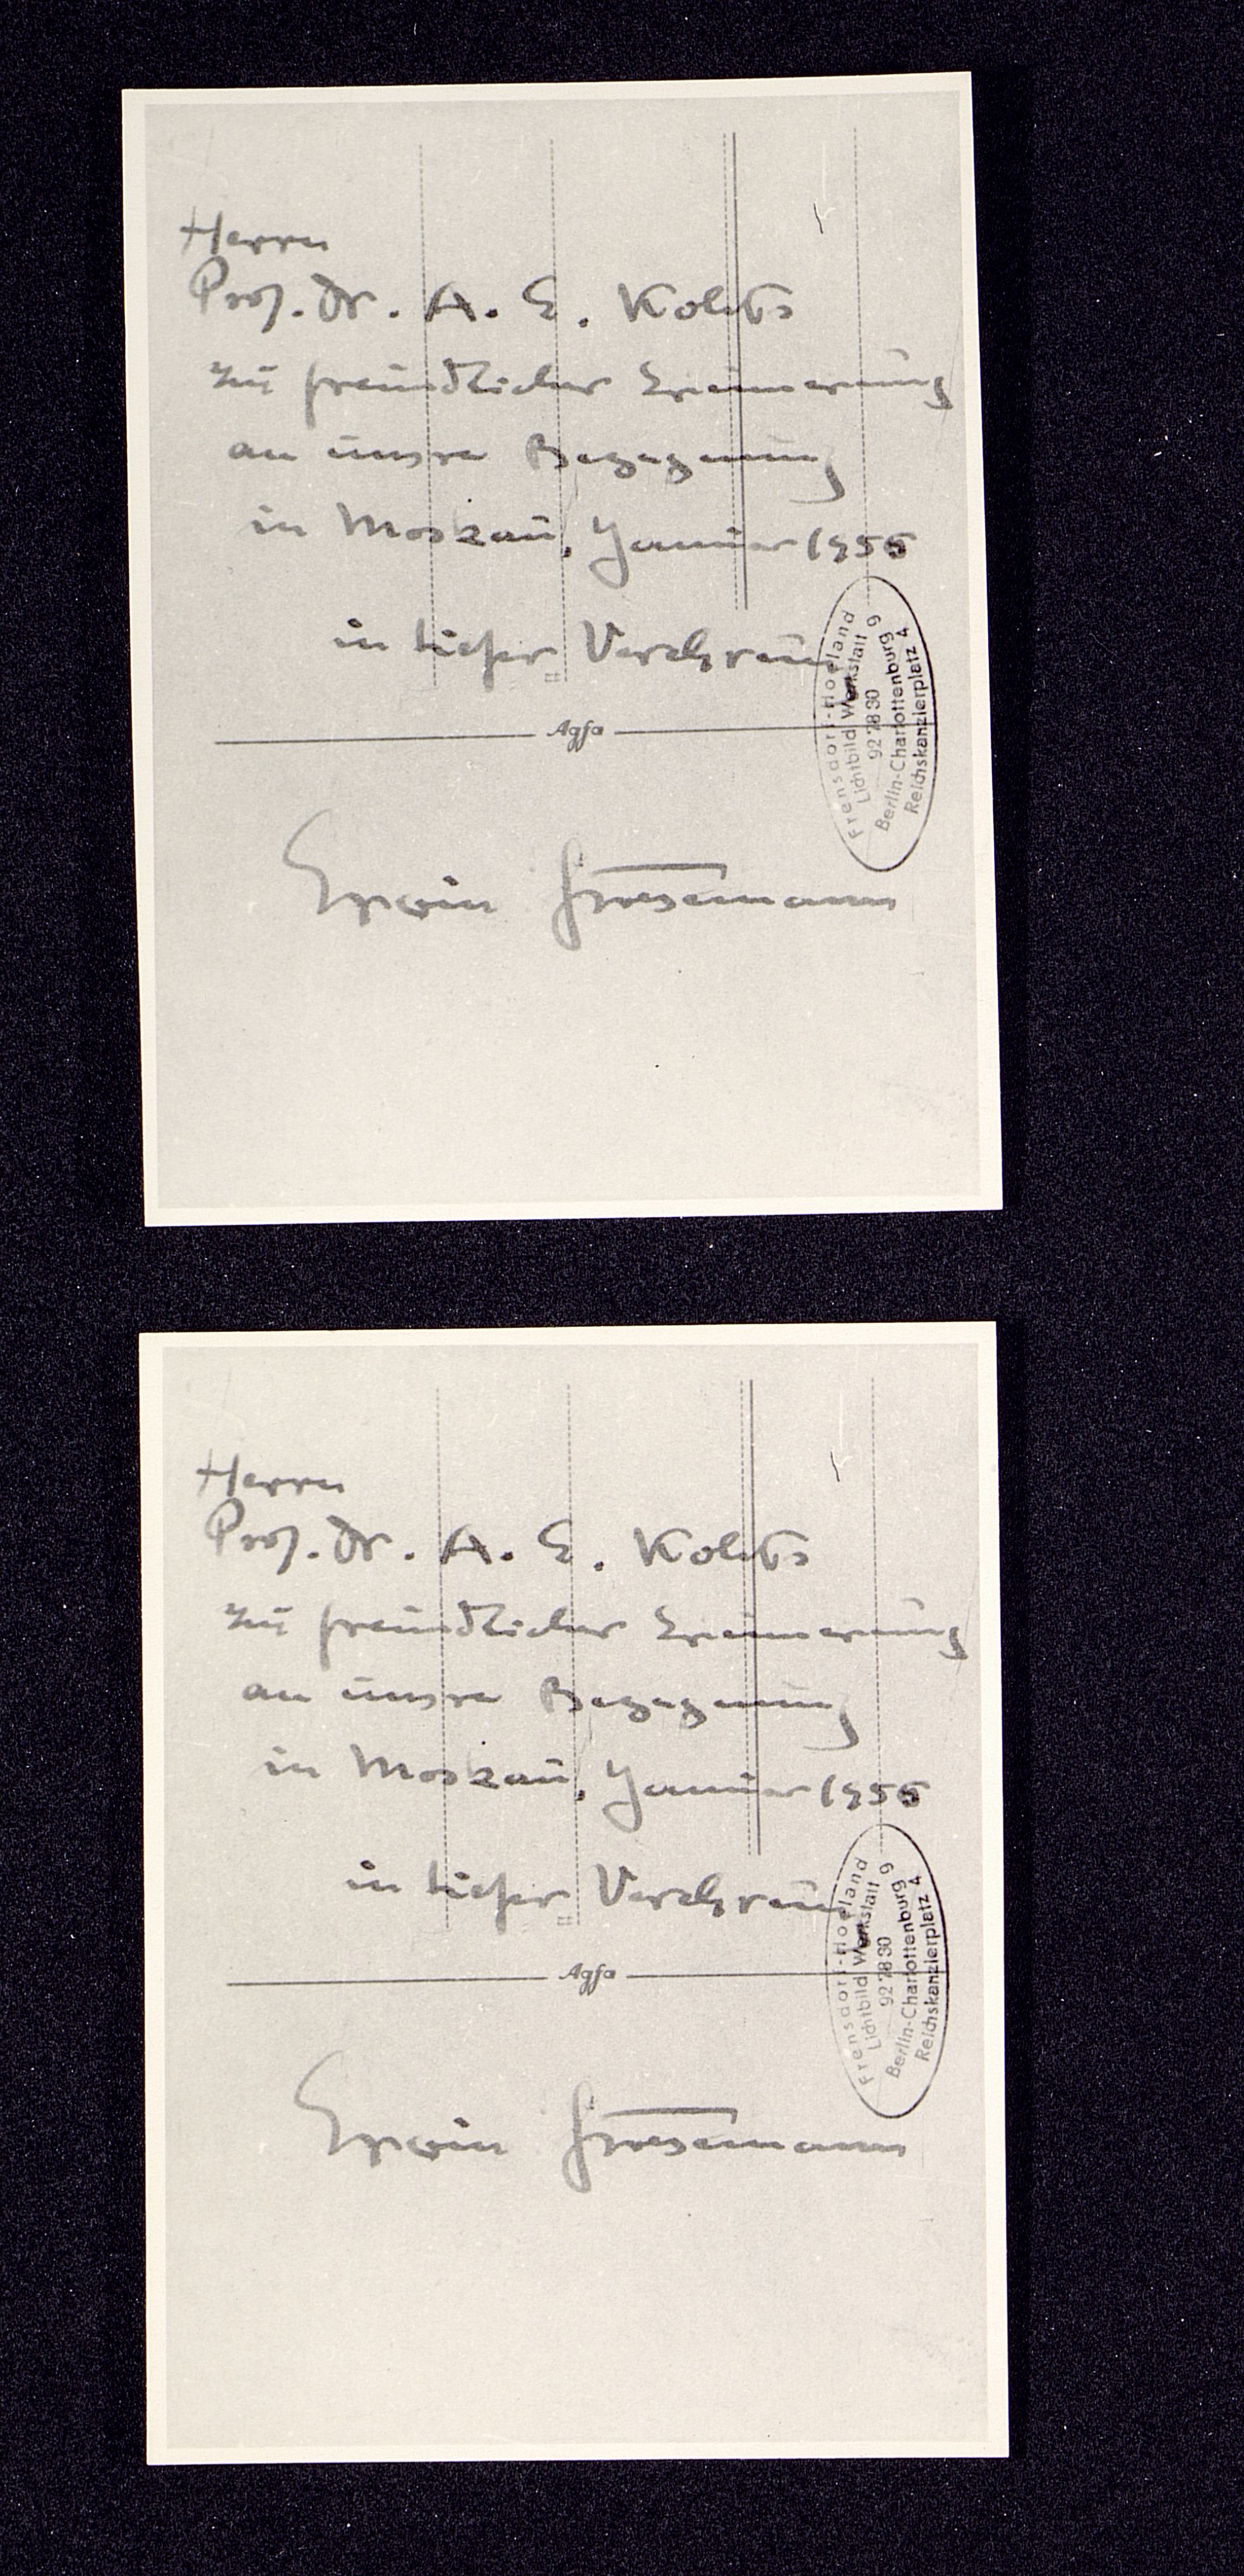 Herrn
Prof. Dr. A. E. Kolbs
zu freundlicher Erinnerung
an unsre Begegnung
in Moskau, Januar 1955
in tiefer Verehrung
Agfa
Frensdorf-Hoeland
Lichtbild Werkstatt
92 78 30
Berlin-Charlottenburg 9
Reichskanzlerplatz 4
Erwin
Herrn
Prof. Dr. A. E.
zu freundlicher Erinnerung
an unsre Begegnung
in Moskau, Januar 1955
in tiefer Verehrung
Agfa
Lichtbild Werkstatt
92 78 30
Berlin-Charlottenburg 9
Reichskanzlerplatz 4
Erwin